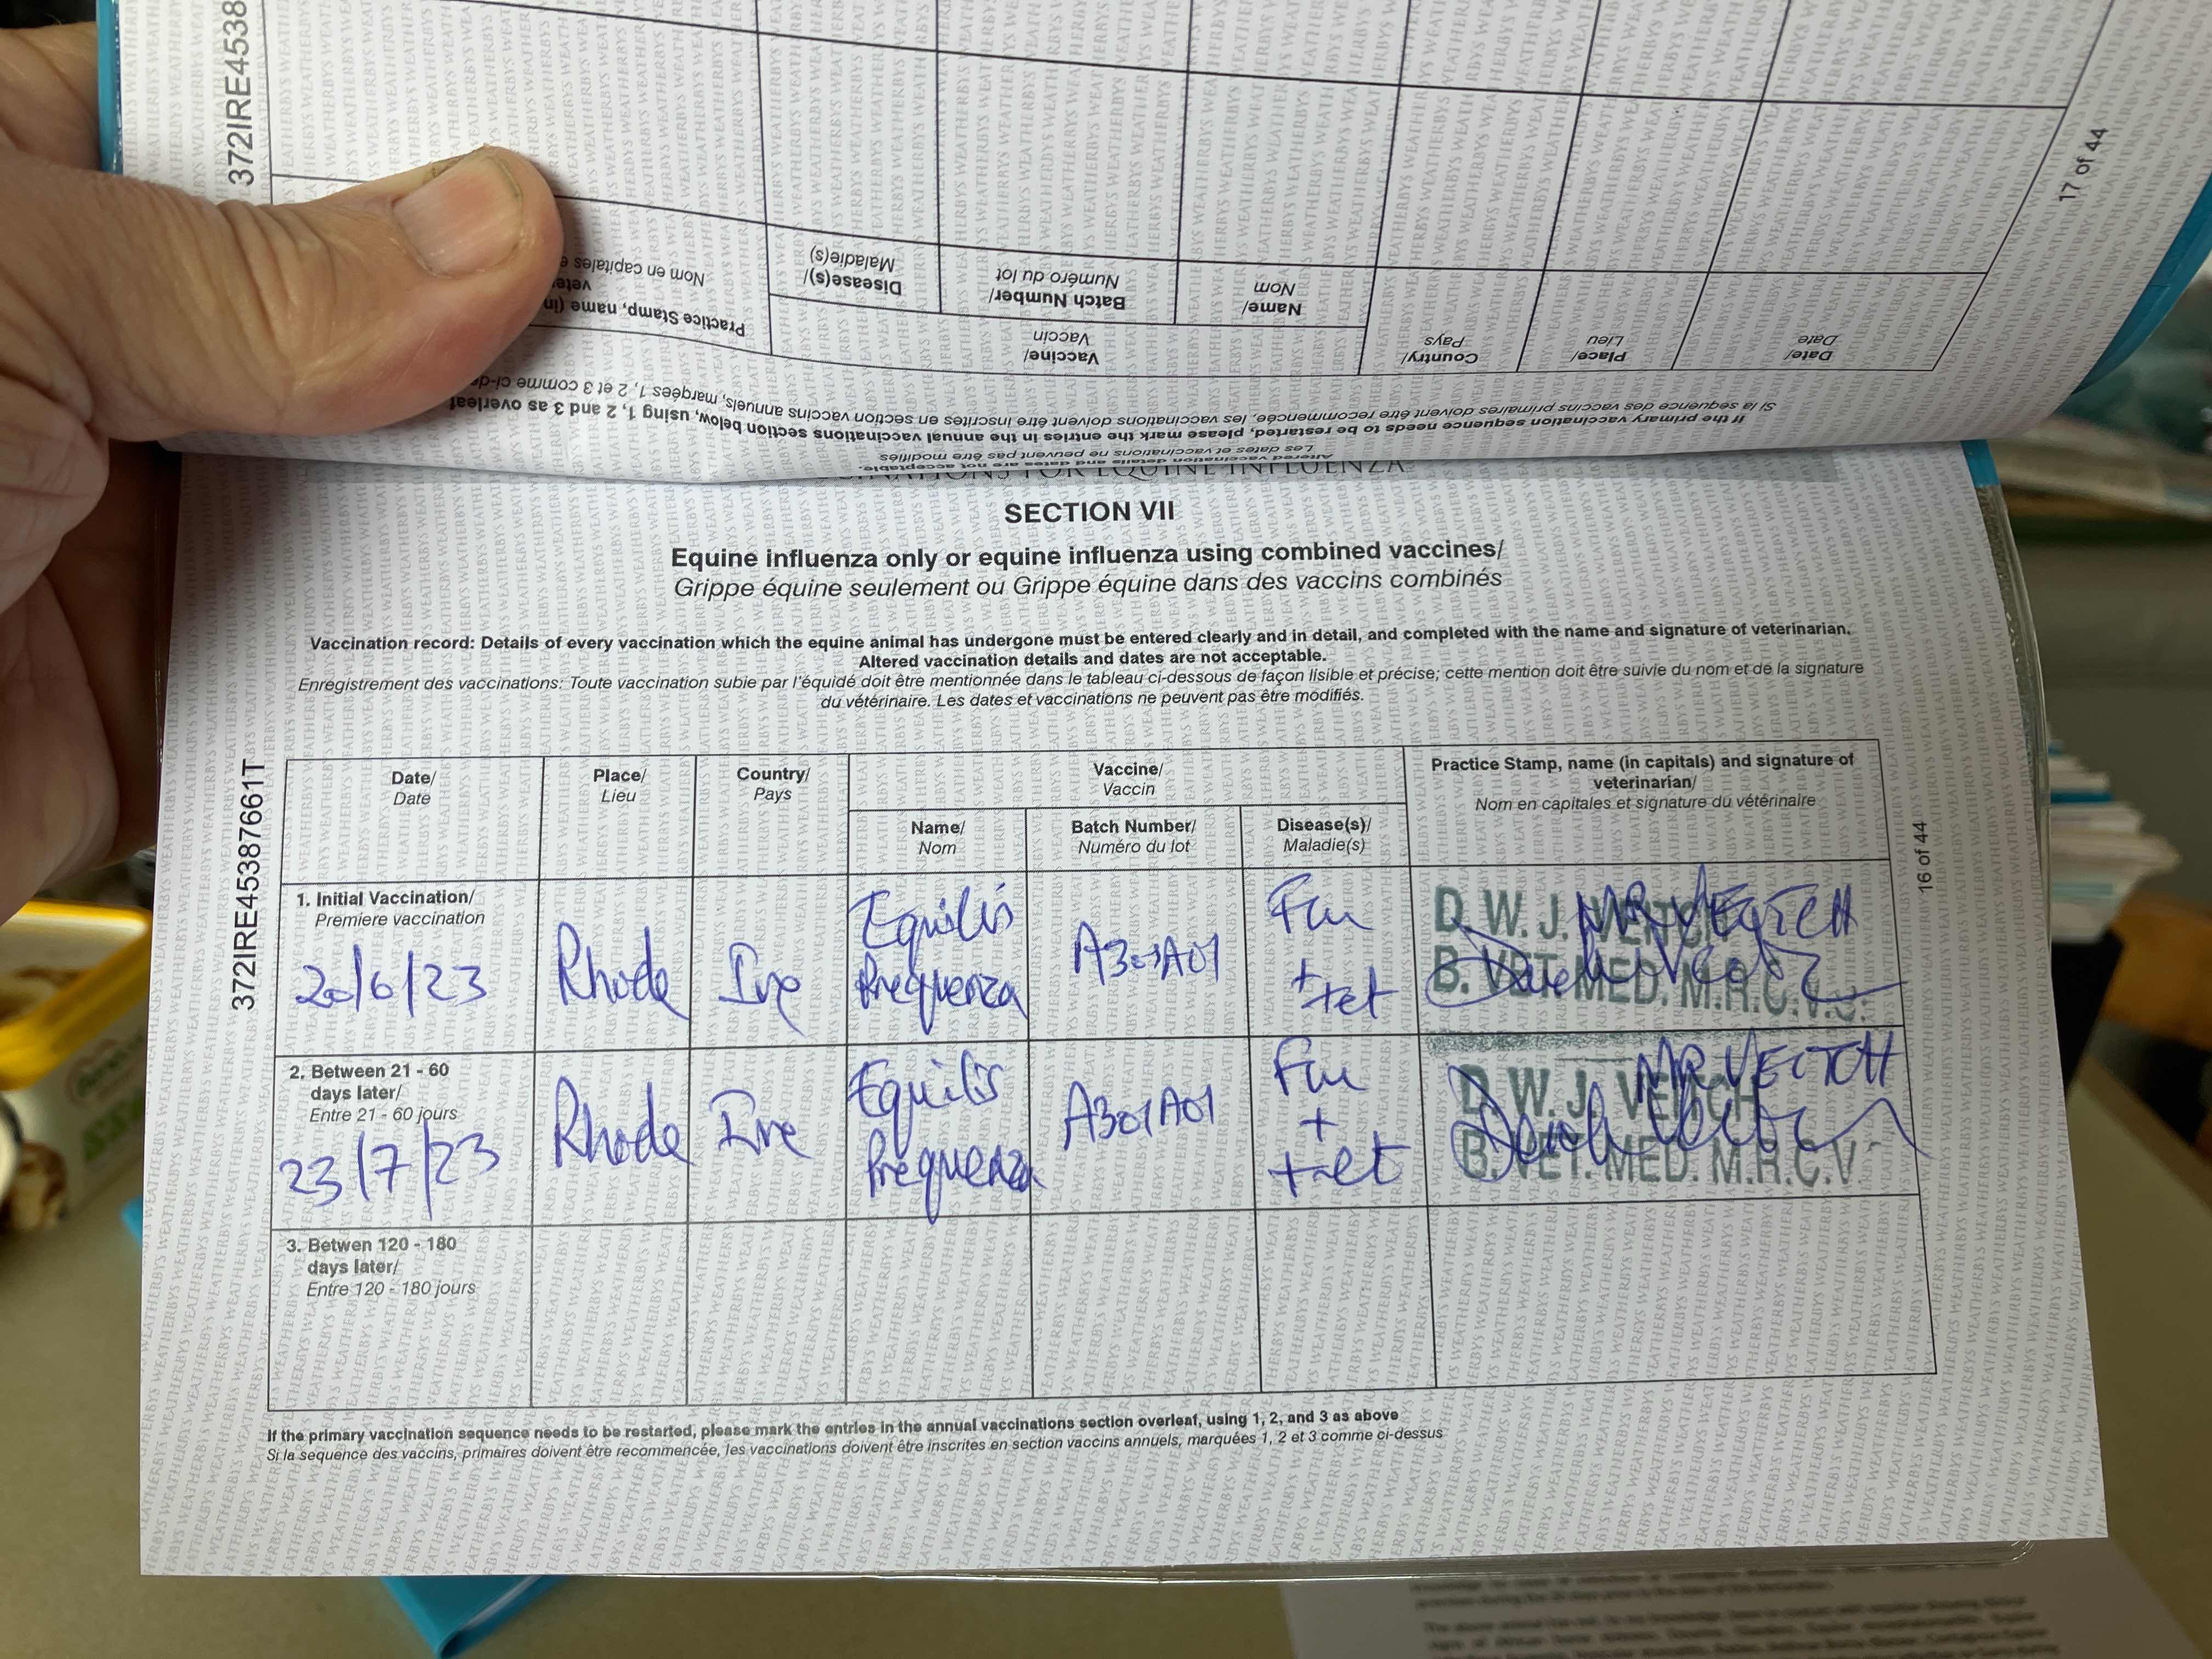 372IRE4538
17 of 44
Practice Stamp, name (in
Nom en capitales e
Vaccine/
Vaccin
Disease(s)/
Maladie(s)
Batch Number/
Numéro du lot
Name/
Nom
Country/
Pays
Place/
Lieu
Date/
Date
If the primary vaccination sequence needs to be restarted, please mark the entries in the annual vaccinations section below, using 1, 2 and 3 as overleaf
Si la sequence des vaccins primaires doivent être recommencée, les vaccinations doivent être inscrites en section vaccins annuels, marquées 1, 2 et 3 comme ci-de
Altered vaccination details and dates are not acceptable.
Les dates et vaccinations ne peuvent pas être modifiés
EQUINE INFLUENZA
SECTION VII
Equine influenza only or equine influenza using combined vaccines/
Grippe équine seulement ou Grippe équine dans des vaccins combinés
Vaccination record: Details of every vaccination which the equine animal has undergone must be entered clearly and in detail, and completed with the name and signature of veterinarian.
Altered vaccination details and dates are not acceptable.
Enregistrement des vaccinations: Toute vaccination subie par l'équidé doit être mentionnée dans le tableau ci-dessous de façon lisible et précise; cette mention doit être suivie du nom et de la signature
du vétérinaire. Les dates et vaccinations ne peuvent pas être modifiés.
372IRE45387661T
16 of 44
Date/
Date
Place/
Lieu
Country/
Pays
Vaccine/
Vaccin
Name/
Nom
Batch Number/
Numéro du lot
Disease(s)/
Maladie(s)
Practice Stamp, name (in capitals) and signature of
veterinarian/
Nom en capitales et signature du vétérinaire
1. Initial Vaccination/
Premiere vaccination
20/6/23
Rhode
Ire
Equilis
Prequenza
A301A01
Flu
+
tet
MR VEITCH
D. W. J. VEITCH
B. VET. MED. M.R.C.V.S.
2. Between 21 - 60
days later/
Entre 21 - 60 jours
23/7/23
Rhode
Ire
Equilis
Prequenza
A301A01
Flu
+
tet
MR VEITCH
D. W. J. VEITCH
B. VET. MED. M.R.C.V
3. Betwen 120 - 180
days later/
Entre 120 - 180 jours
If the primary vaccination sequence needs to be restarted, please mark the entries in the annual vaccinations section overleaf, using 1, 2, and 3 as above
Si la sequence des vaccins, primaires doivent être recommencée, les vaccinations doivent être inscrites en section vaccins annuels, marquées 1, 2 et 3 comme ci-dessus